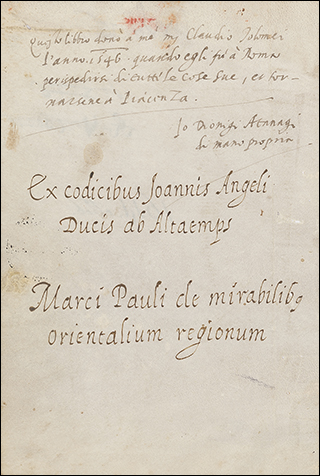 Questo libro donò à me m Claudio Tolomei
l'anno. 1546. quando egli fu à Roma
per ispedirsi di tutte le cose sue, et tor-
narsene à Piacenza.
Io Dionigi Atanagi
di mano propria
Ex codicibus Joannis Angeli
Ducis ab Altaemps
Marci Pauli de mirabilibq
orientalium regionum